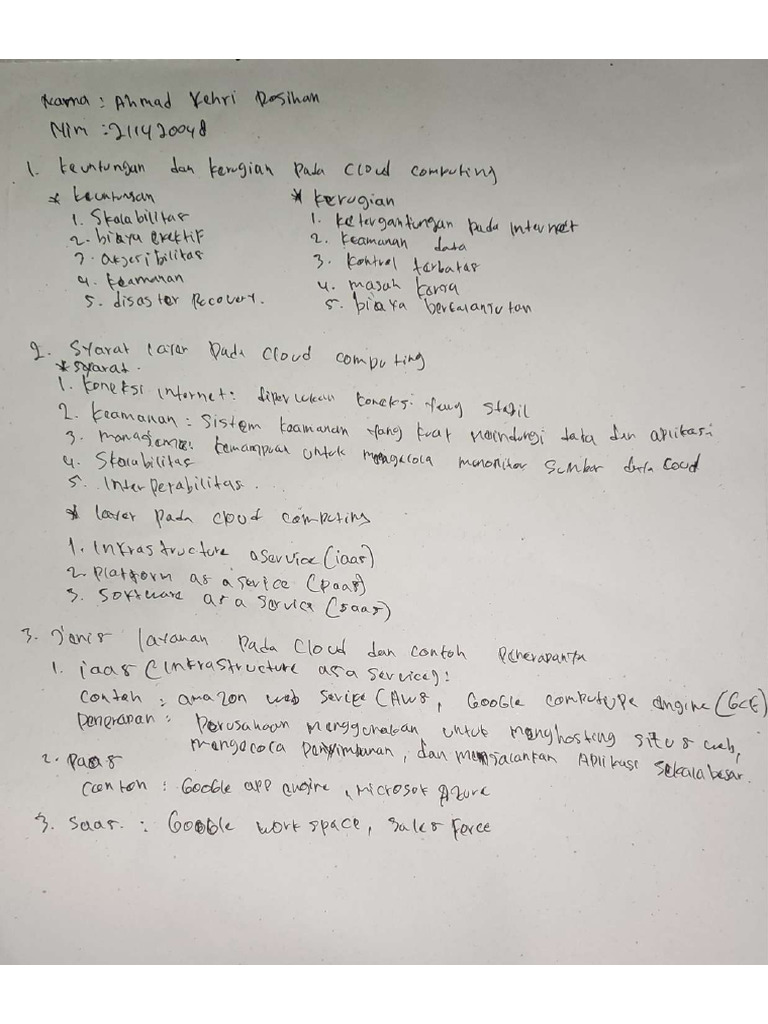 Nama : Ahmad Kehri Rosihan
Nim : 211420048
1. Keuntungan dan kerugian pada cloud computing
* keuntungan * kerugian
1. Skalabilitas 1. ketergantungan pada internet
2. biaya efektif 2. keamanan data
3. aksesibilitas 3. kontrol terbatas
4. keamanan 4. masalah
5. disaster recovery. 5. biaya berkelanjutan
2. Syarat layer pada cloud computing
* syarat.
1. Koneksi internet : diperlukan koneksi yang stabil
2. keamanan : sistem keamanan yang kuat melindungi data dan aplikasi
3. manajemen : kemampuan untuk mengelola memonitor sumber daya cloud
4. Skalabilitas
5. Interperabilitas.
* layer pada cloud computing
1. Infrastructure aservice (iaas)
2. platform as a service (paas)
3. software as a service (saas)
3. Jenis layanan pada cloud dan contoh penerapanya
1. iaas (infrastructure as a service) :
Contoh : amazon web service (AWS, Google compute engine (GCE)
penerapan : perusahaan menggunakan untuk menghosting situs web,
mengelola penyimpanan, dan menjalankan aplikasi sekala besar.
2. paas
Contoh : Google app engine, microsof Azure
3. saas. : Google work space, sales force